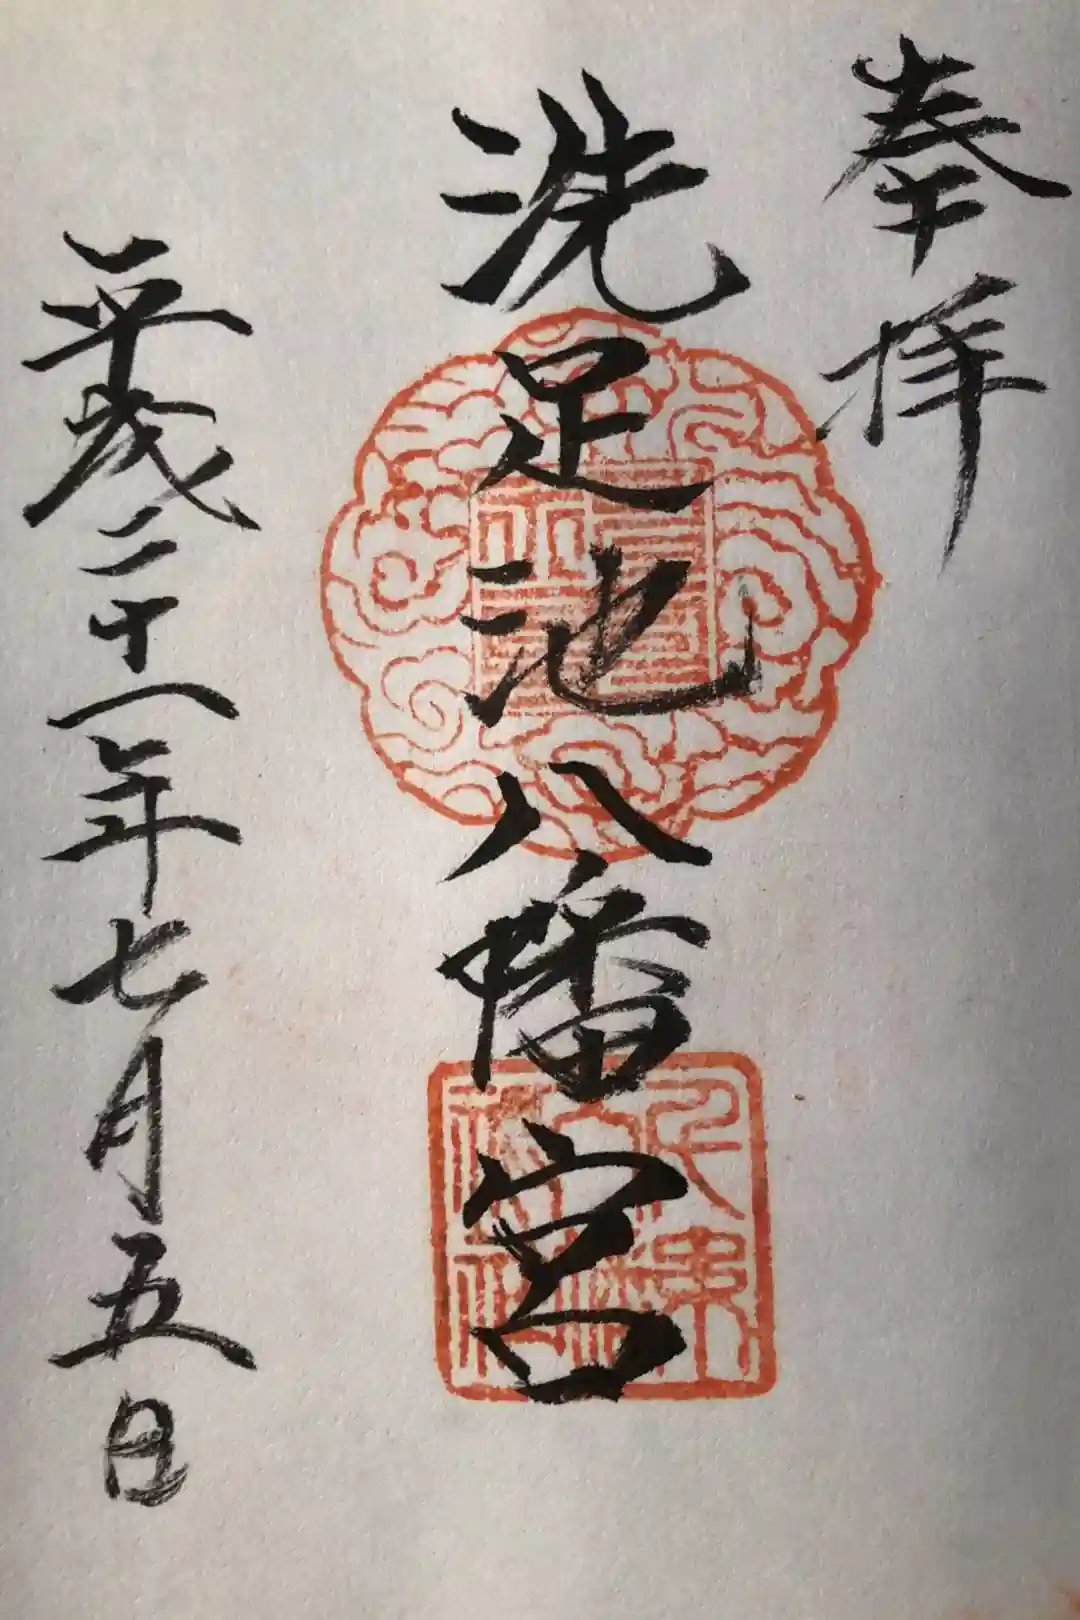 奉拝
洗足池八幡宮
平成二十一年七月五日